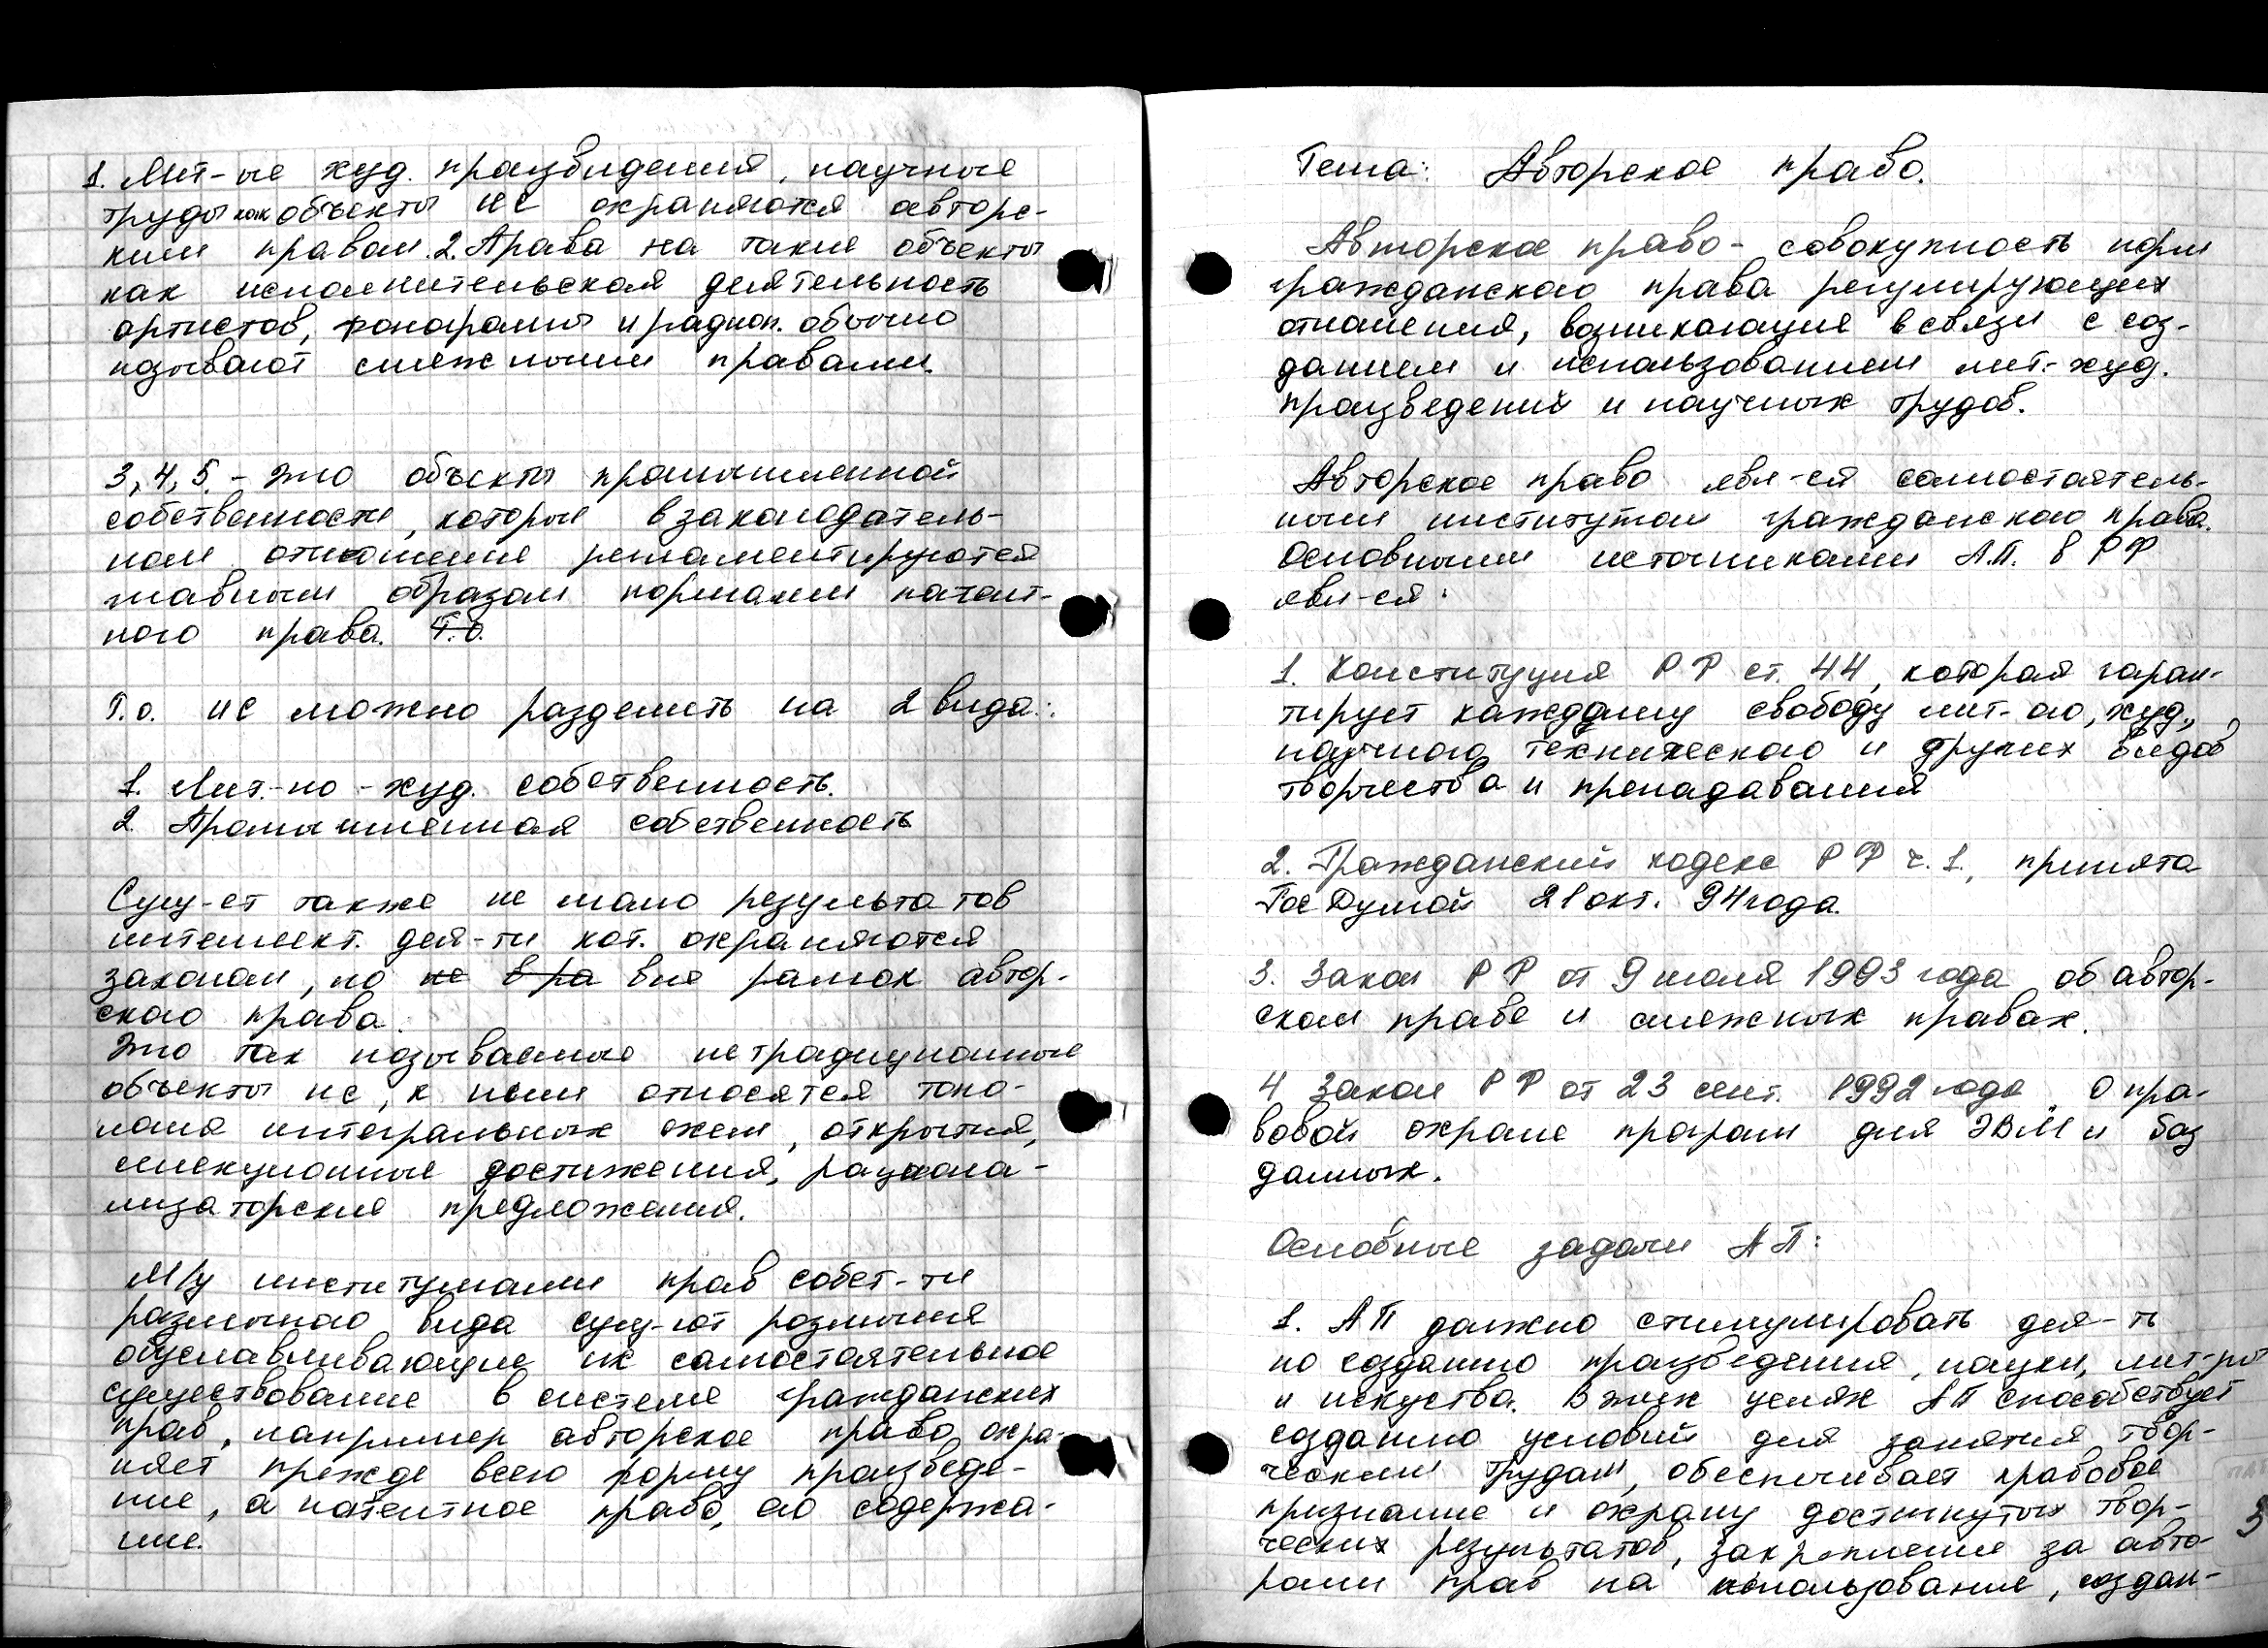 1. Лит-ые худ. произвидения, научные
труды как объекты ИС охраняются авторс-
ким правом. 2. Права на такие объекты
как исполнительская деятельность
артистов, фонограммы и радиоп. обычно
называют смежными правами.
3, 4, 5. - это объекты промышленной
собственности, которые в законодатель-
ном отношение регламентируются
главным образом нормами патент-
ного права. Т.о.
Т.о. ИС можно разделить на 2 вида:
1. Лит.-но-худ. собственность.
2. Промышленная собственность
Сущ-ет также не мало результатов
интеллект. дея-ти кот. охраняются
законом, но не в ра вне рамок автор-
ского права.
Это так называемые нетрадиционные
объекты ис, к ним относятся топо-
логия интегральных схем, открытия,
селекционные достижения, рациона-
лизаторские предложения.
М/у институтами прав собст-ти
различного вида сущ-ют различия
обуславливающие их самостоятельное
существование в системе гражданских
прав, например авторское право охра-
няет прежде всего форму произведе-
ние, а патентное право, его содержа-
ние.
Тема: Авторское право.
Авторское право - совокупность норм
гражданского права регулирующих
отношения, возникающие в связи с соз-
данием и использованием лит.-худ.
произведений и научных трудов.
Авторское право явл-ся самостоятель-
ным институтом гражданского права.
Основными источниками А.П. в РФ
явл-ся:
1. Конституция РФ ст. 44, которая гаран-
тирует каждому свободу лит-го, худ.,
научного, технического и других видов
творчества и преподавания
2. Гражданский кодекс РФ ч. 1, принята
Гос Думой 21 окт. 94 года.
3. Закон РФ от 9 июля 1993 года об автор-
ском праве и смежных правах.
4 Закон РФ от 23 сент. 1992 года О пра-
вовой охране програм для ЭВМ и баз
данных.
Основные задачи АП:
1. АП должно стимулировать дея-ть
по созданию произведения, науки, лит-ры
и искуства. В этих целях АП способствует
созданию условий для занятия твор-
ческим трудом, обеспечивает правовое
признание и охрану достигнутых твор-
ческих результатов, закрепление за авто-
рами прав на использование, создан-